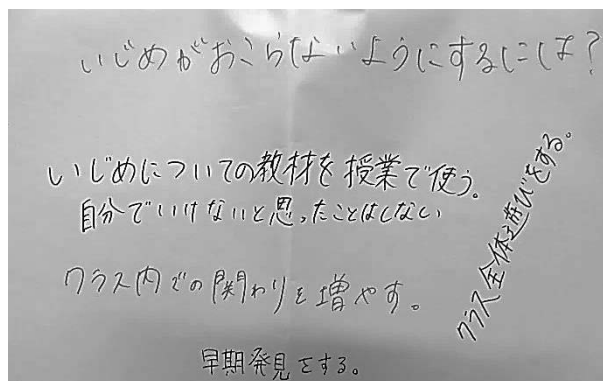 いじめがおこらないようにするには?
いじめについての教材を授業で使う。
自分でいけないと思ったことはしない
クラス内での関わりを増やす。
早期発見をする。
クラス全体遊びをする。